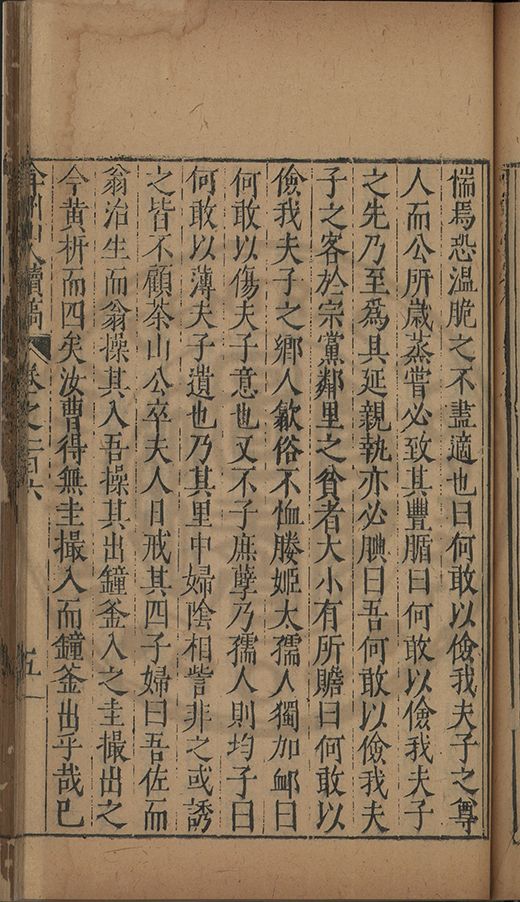 惴焉恐溫脆之不盡適也曰何敢以儉我夫子之尊
人而公所歲蒸嘗必致其豐腯曰何敢以儉我夫子
之先乃至爲具延親執亦必腆曰吾何敢以儉我夫
子之客於宗黨鄰里之貧者大小有所贍曰何敢以
儉我夫子之鄉人歙俗不恤媵姬太孺人獨加䘏曰
何敢以傷夫子意也又不子庶孽乃孺人則均子曰
何敢以薄夫子遺也乃其里中婦陰相訾非之或誘
之皆不顧茶山公卒夫人日戒其四子婦曰吾佐而
翁治生而翁操其入吾操其出鐘釜入之圭撮出之
今黃析而四矣汝曹得無圭撮入而鐘釜出乎哉已
弇州山人續稿 卷之一百六 五